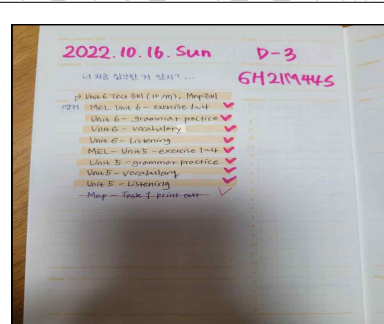 2022.10.16. Sun
D-3
6H21M44S
너 지금 심각한 거 알지? ...
Unit 6 Test 8여 (10/19), Map 8여
영어 MEL Unit 6 - exercise 1~4
Unit 6 - grammar practice
Unit 6 - vocabulary
Unit 6 - Listening
MEL - Unit 5 - exercise 1~4
Unit 5 - grammar practice
Unit 5 - vocabulary
Unit 5 - Listening
Map - Task 7 print out